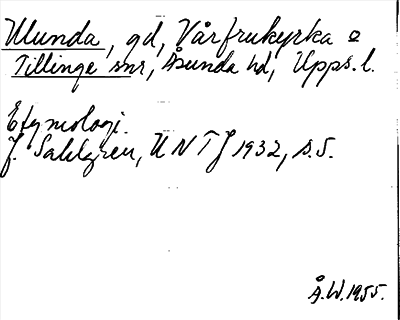 Ulunda, gd, Vårfrukyrka o
Tillinge snr, Åsunda hd, Upps. l.
Etymologi.
J. Sahlgren, UNTJ 1932, s. 5.
Å.W. 1955.